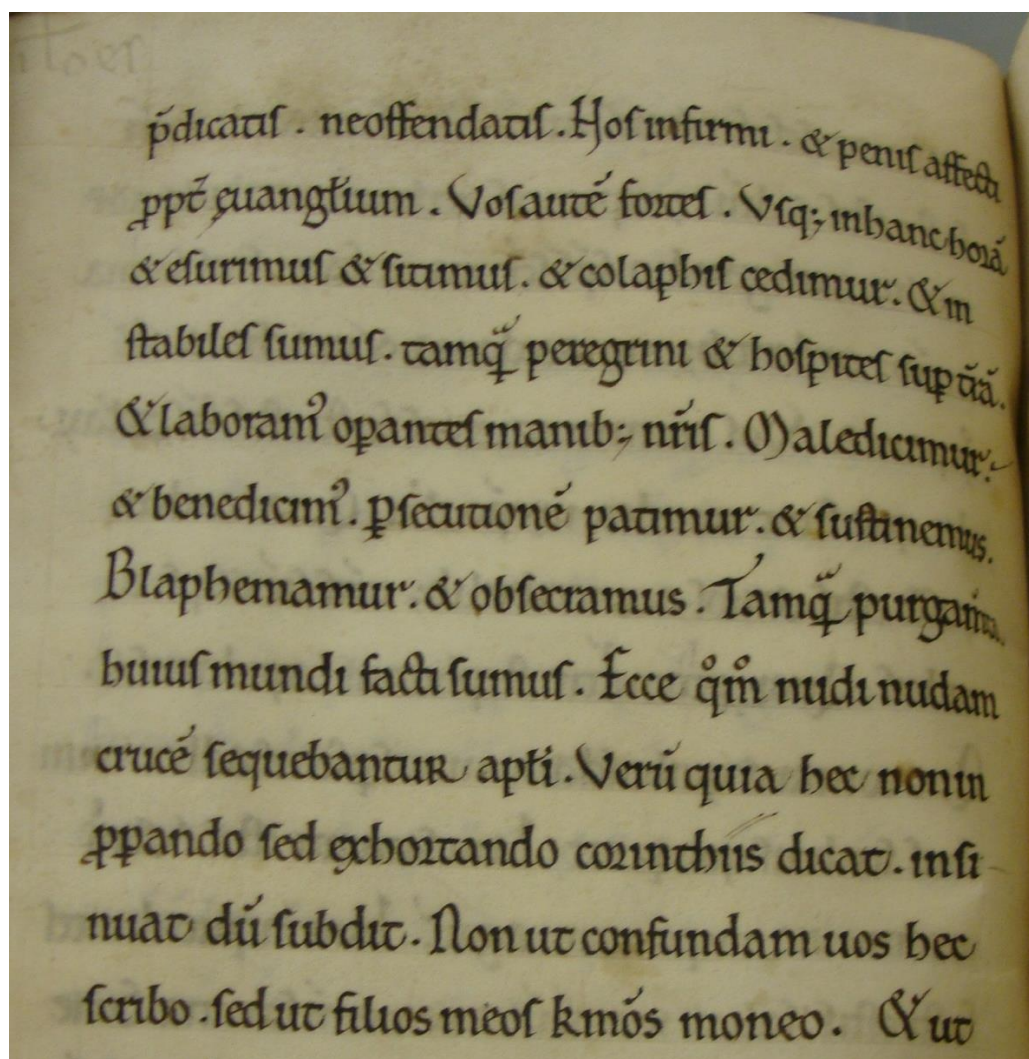 p̄dicatiſ . neoffendatiſ . Hoſ infirmi . & peniſ affecti
ꝓpt̄ ęuangłium . Voſautē forteſ . Vſq; inhanc horā
& eſurimuſ & ſitimuſ . & colaphiſ cedimur . & in
ſtabileſ ſumuſ . tamqͣ peregrini & hoſpiteſ ſuꝑ t̄rā .
& laboramꝰ oꝑanteſ manib; nr̄iſ . Maledicimur .
& benedicimꝰ . ꝑſecutionē patimur . & ſuſtinemus .
Blaphemamur . & obſecramus . Tamqͣ purgamta .
huiuſ mundi facti ſumuſ . Ecce qͦmͦ nudi nudam
crucē ſequebantur apłi . Verū quia hec nonin
ꝓꝑando ſed exhortando corinthiis dicat . inſi
nuat dū ſubdit . Non ut confundam uos hec
ſcribo . ſed ut filios meoſ kmōs moneo . & ut